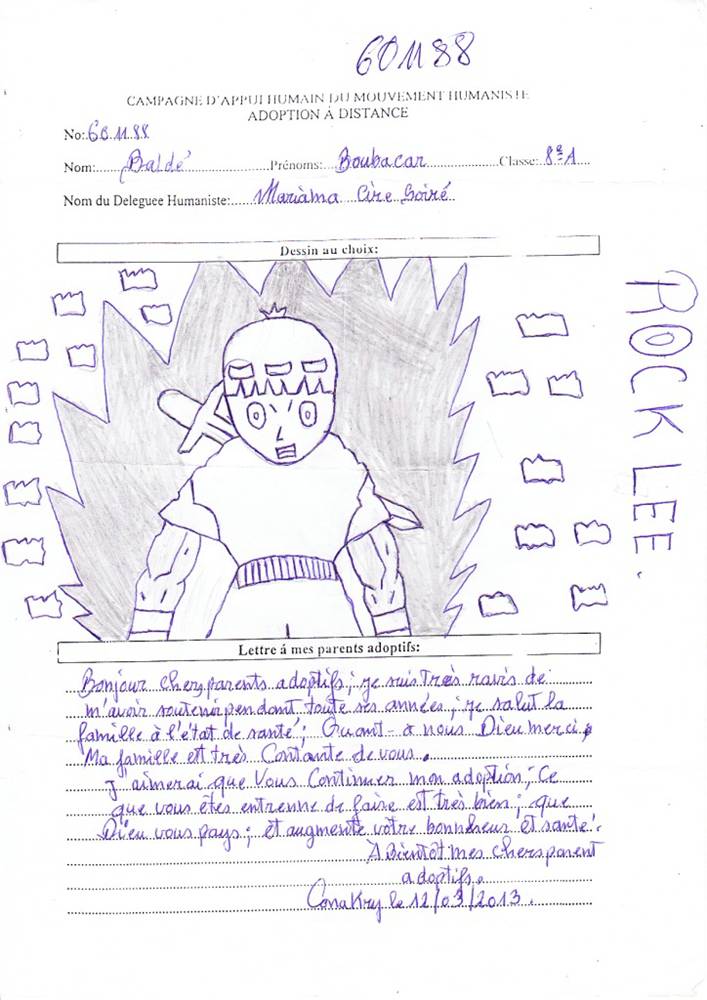 601188
CAMPAGNE D'APPUI HUMAIN DU MOUVEMENT HUMANISTE
ADOPTION À DISTANCE
No: 60.11.88
Nom: Baldé Prénoms: Boubacar Classe: 8e A
Nom du Deleguee Humaniste: Mariama Cire Soiré
Dessin au choix:
ROCK LEE.
Lettre á mes parents adoptifs:
Bonjour chers parents adoptifs; je suis très ravis de
m'avoir soutenir pendant toute ses années; je salut la
famille à l'état de santé; Quant-à nous Dieu merci,
Ma famille est très Contante de vous.
J'aimerai que Vous Continuer mon adoption; Ce
que vous êtes entrenne de faire est très bien; que
Dieu vous pays; et augmente votre bonnheur et santé.
À Bientôt mes chers parent
adoptifs.
Conakry le 12/03/2013.